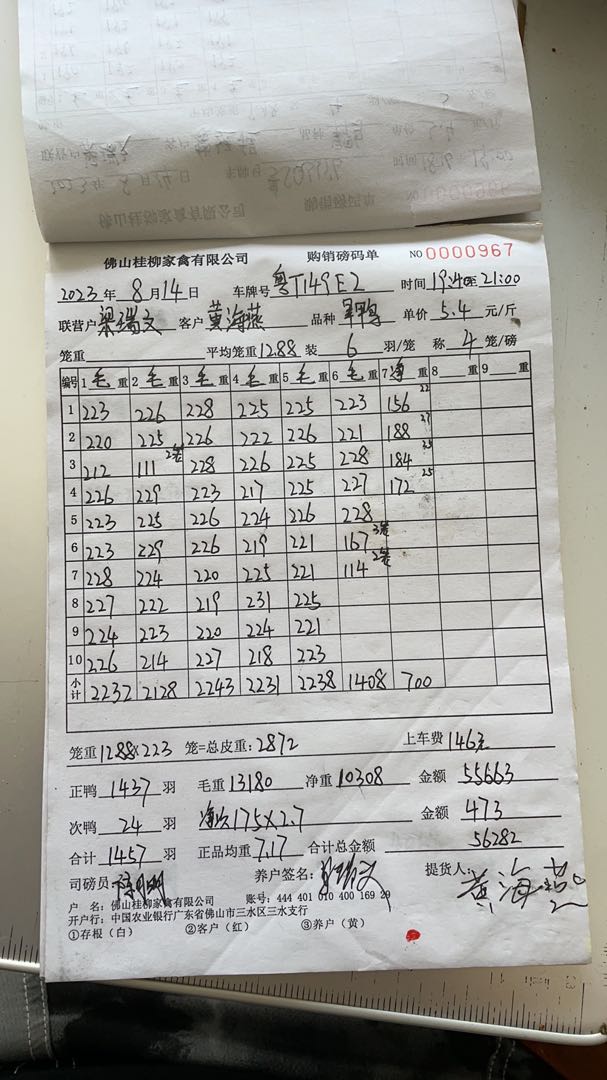 佛山桂柳家禽有限公司 购销磅码单 NO 0000967
2023 年 8 月 14 日 车牌号 粤T149E2 时间 19:40至21:00
联营户 梁瑞文 客户 黄海燕 品种 单价 5.4 元/斤
笼重 平均笼重 12.88 装 6 羽/笼 称 4 笼/磅
编号 1 毛 重 2 毛 重 3 毛 重 4 毛 重 5 毛 重 6 毛 重 7 净 重 8 重 9 重
1 223 226 228 225 225 223 156 22
2 220 225 226 222 226 221 188 27
3 212 111 2笼 228 226 225 228 184 25
4 226 229 223 217 225 227 172 25
5 223 225 226 224 226 228
6 223 229 226 219 221 167 3笼
7 228 224 220 225 221 114 2笼
8 227 222 219 231 225
9 224 223 220 224 221
10 226 214 227 218 223
小计 2232 2128 2243 2231 2238 1408 700
笼重 12.88×223 笼=总皮重: 2872 上车费 146元
正鸭 1437 羽 毛重 13180 净重 10308 金额 55663
次鸭 24 羽 175×2.7 金额 473
合计 1457 羽 正品均重 7.17 合计总金额 56282
司磅员: 养户签名: 提货人: 黄海燕
户 名: 佛山桂柳家禽有限公司 账号: 444 401 010 400 169 29
开户行: 中国农业银行广东省佛山市三水区三水支行
①存根（白） ②客户（红） ③养户（黄）